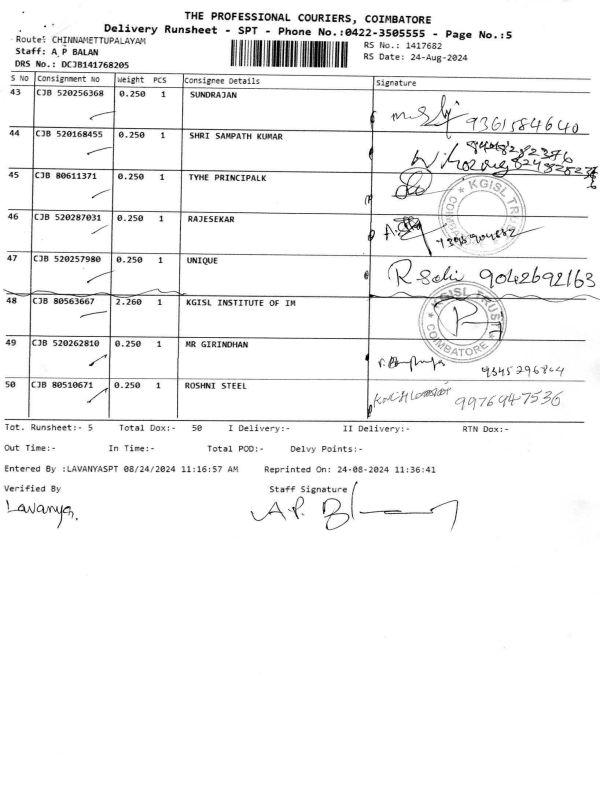 THE PROFESSIONAL COURIERS, COIMBATORE
Delivery Runsheet - SPT - Phone No.:0422-3505555 - Page No.:5
Route: CHINNAMETTUPALAYAM
RS No.: 1417682
Staff: A P BALAN
RS Date: 24-Aug-2024
DRS No.: DCJB141768205
S No Consignment No Weight PCS Consignee Details Signature
43 CJB 520256368 0.250 1 SUNDRAJAN
9361584640
44 CJB 520168455 0.250 1 SHRI SAMPATH KUMAR
45 CJB 80611371 0.250 1 TYHE PRINCIPALK
KGISL TRUST
46 CJB 520287031 0.250 1 RAJESEKAR
47 CJB 520257980 0.250 1 UNIQUE
9042692163
48 CJB 80563667 2.260 1 KGISL INSTITUTE OF IM
KGISL TRUST
COIMBATORE
49 CJB 520262810 0.250 1 MR GIRINDHAN
50 CJB 80510671 0.250 1 ROSHNI STEEL
9976947536
Tot. Runsheet:- 5 Total Dox:- 50 I Delivery:- II Delivery:- RTN Dox:-
Out Time:- In Time:- Total POD:- Delvy Points:-
Entered By :LAVANYASPT 08/24/2024 11:16:57 AM Reprinted On: 24-08-2024 11:36:41
Verified By Staff Signature
Lavanya. A.P. Bl